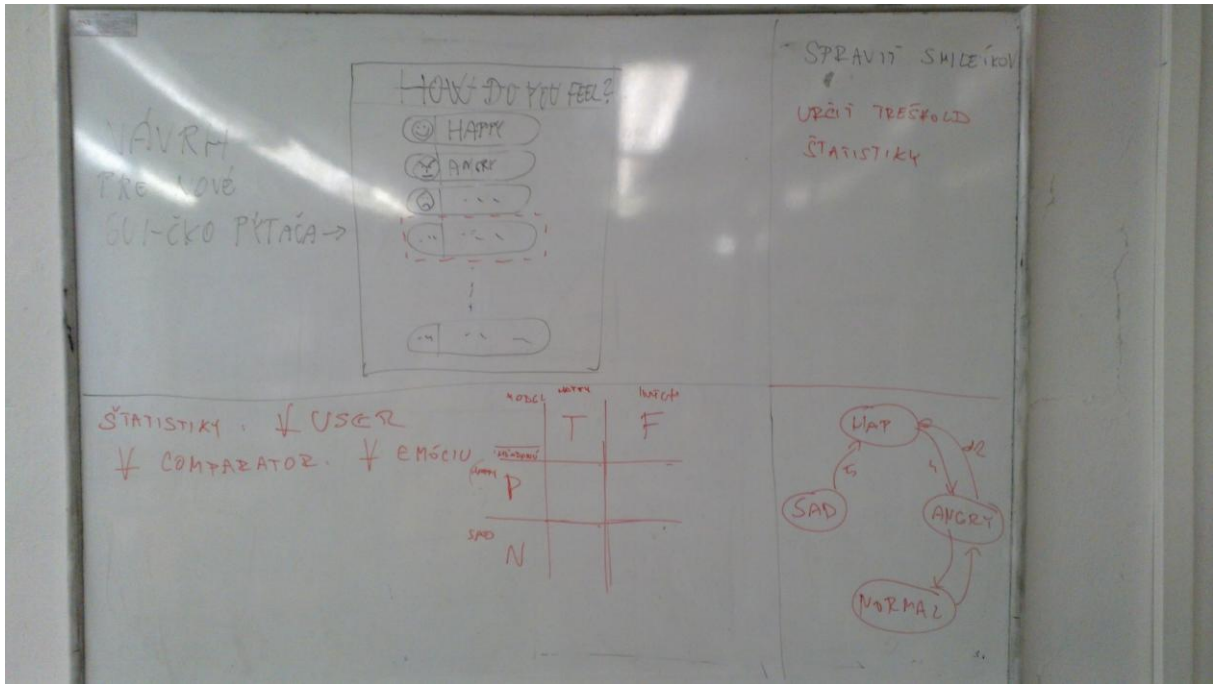 NÁVRH
PRE NOVÉ
GUI-ČKO PÝTAČA →
HOW DO YOU FEEL?
HAPPY
ANGRY
SPRAVIŤ SMILEÍKOV
URČIŤ TREŠHOLD
ŠTATISTIKY
ŠTATISTIKY: ∀ USER
∀ COMPARATOR. ∀ EMÓCIU
MODEL
T
F
HAPPY
P
SAD
N
HAP
SAD
ANGRY
NORMAL